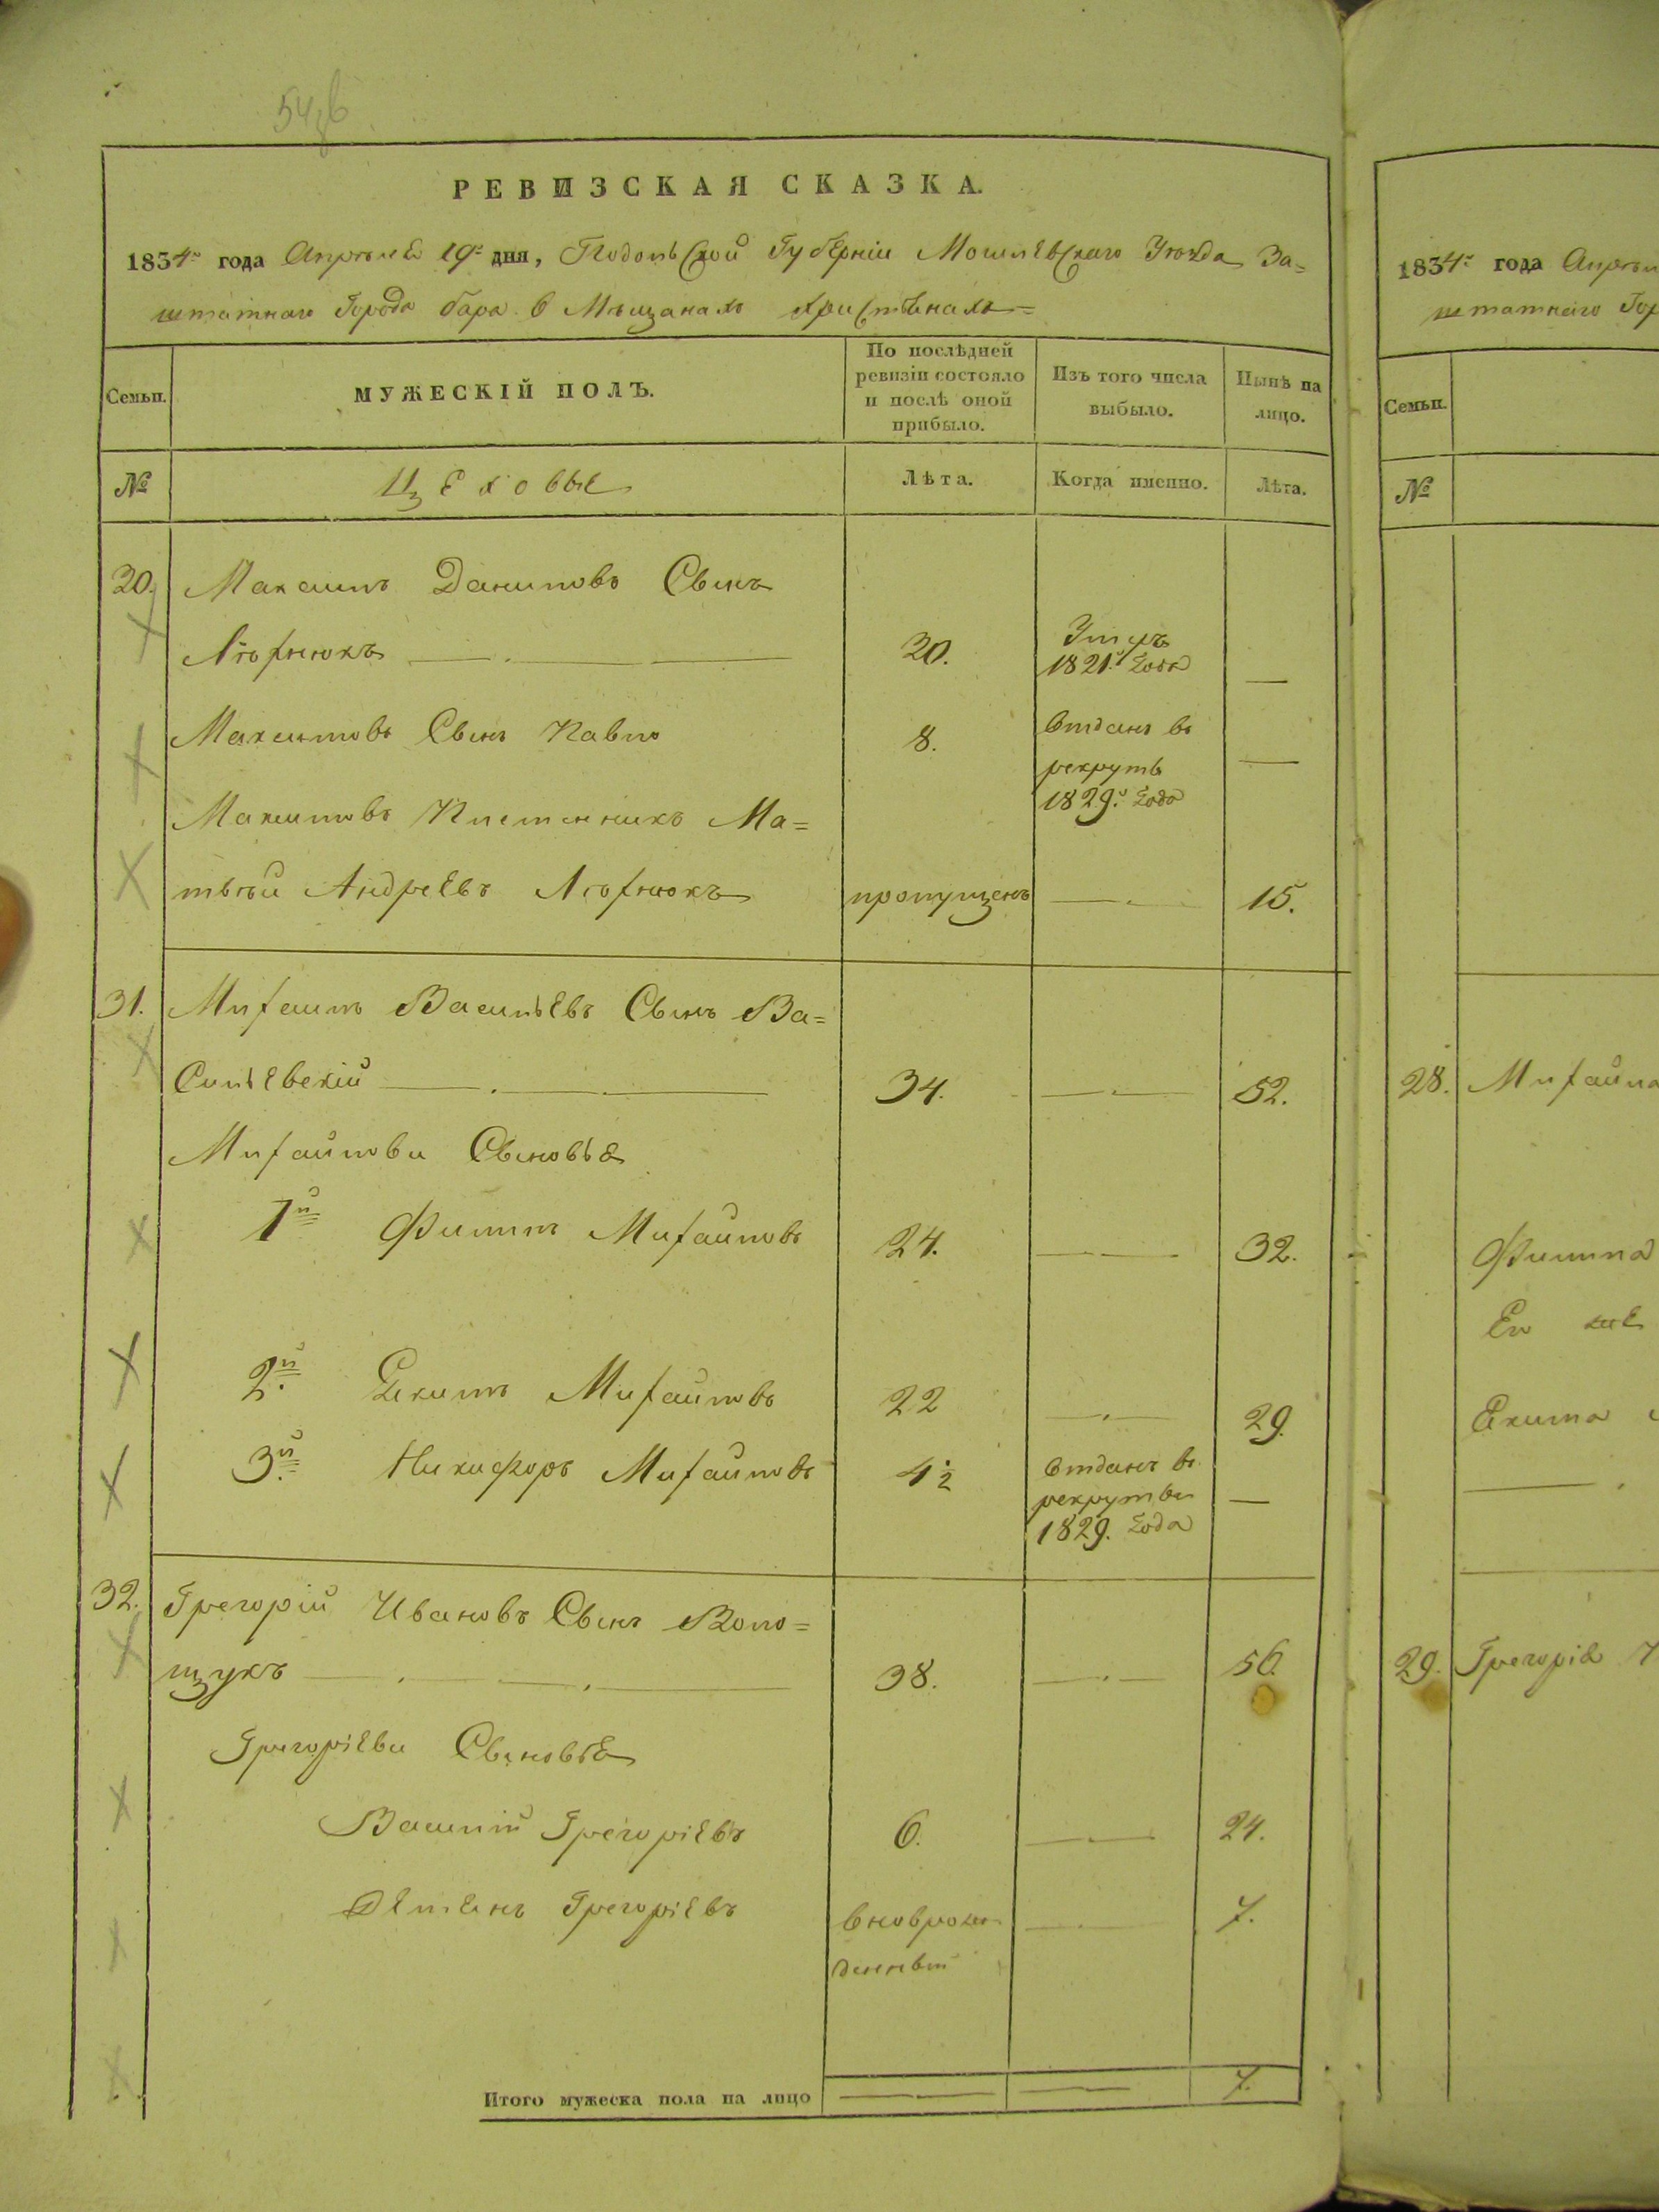 54зв
РЕВИЗСКАЯ СКАЗКА.
1834го года Апрѣля 19го дня, Подольской Губерніи Могилевскаго Уѣзда За=
штатнаго Города бара в Мѣщанахъ христіянахъ=
Семьи.
МУЖЕСКІЙ ПОЛЪ.
По послѣдней ревизіи состояло и послѣ оной прибыло.
Изъ того числа выбыло.
Нынѣ на лицо.
№
Цеховые
Лѣта.
Когда именно.
Лѣта.
30. Максимъ Даниловъ Сынъ
20. Умеръ
1821го года —
Максимовъ Сынъ Павло 8. Отданъ въ
рекруты —
1829го года
Максимовъ Племянникъ Ма=
твѣй Андреевъ пропущенъ 15.
31. Михаилъ Васильевъ Сынъ Ва=
Сильевскій 34. 52.
Михайловы Сыновья
1й Филипъ Михайловъ 24. 32.
2й Екимъ Михайловъ 22 29.
3й Никифоръ Михайловъ 4½ Отданъ въ
рекруты —
1829. года
32. Григорій Ивановъ Сынъ Воло=
щукъ 38. 56.
Григоріевы Сыновья
Василій Григоріевъ 6. 24.
Григоріевъ вноврож
денный 7.
Итого мужеска пола на лицо 7.
1834го года
штатнаго
Семьи.
№
28.
Филипа
Ек же
Екима
29. Григорія